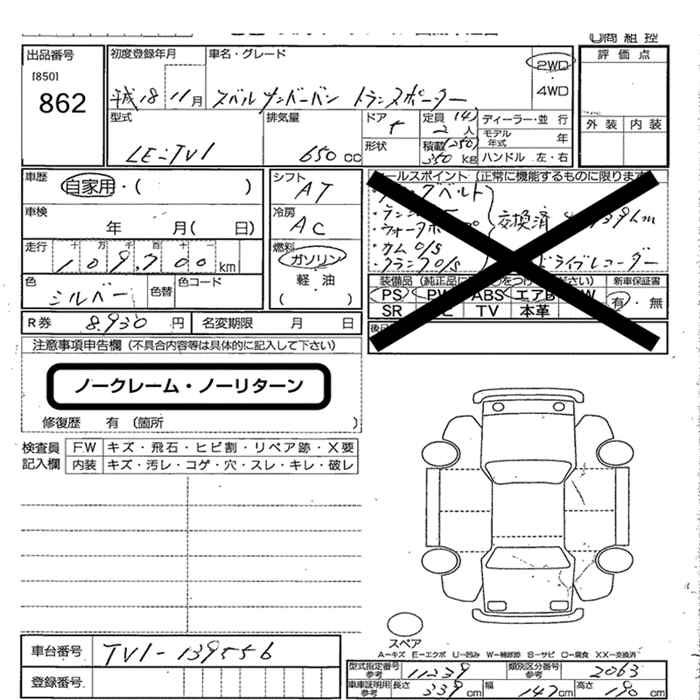 U商組控
出品番号
[850]
862
初度登録年月
平成18年11月
車名・グレード
スバルサンバーバン トランスポーター
2WD
・
4WD
評価点
外装 内装
型式
LE-TV1
排気量
650cc
ドア
形状
定員 (4)
2人
積載 (250)
350kg
ディーラー・並行
モデル年式 年
ハンドル 左・右
車歴
自家用・( )
車検
年 月( 日)
走行
十万千百十一
109,700km
色
シルバー
色替
色コード
シフト
AT
冷房
AC
燃料
ガソリン
軽油
( )
セールスポイント(正常に機能するものに限ります)
交換済
・カムO/S
・クランクO/S
ドライブレコーダー
装備品(純正品に○をつけ ださい)
新車保証書
PS PW ABS エアB
SR TV 本革
有・無
R券 8,930円
名変期限 月 日
注意事項申告欄(不具合内容等は具体的に記入して下さい)
ノークレーム・ノーリターン
修復歴 有(箇所 )
検査員記入欄
FW キズ・飛石・ヒビ割・リペア跡・X要
内装 キズ・汚レ・コゲ・穴・スレ・キレ・破レ
スペア
A-キズ E-エクボ U-凹み W-補修跡 S-サビ C-腐食 XX-交換済
車台番号
TV1-139556
登録番号
型式指定番号 参考 11239
類別区分番号 参考 2063
車庫証明用 参考 長さ 339cm 幅 147cm 高さ 190cm